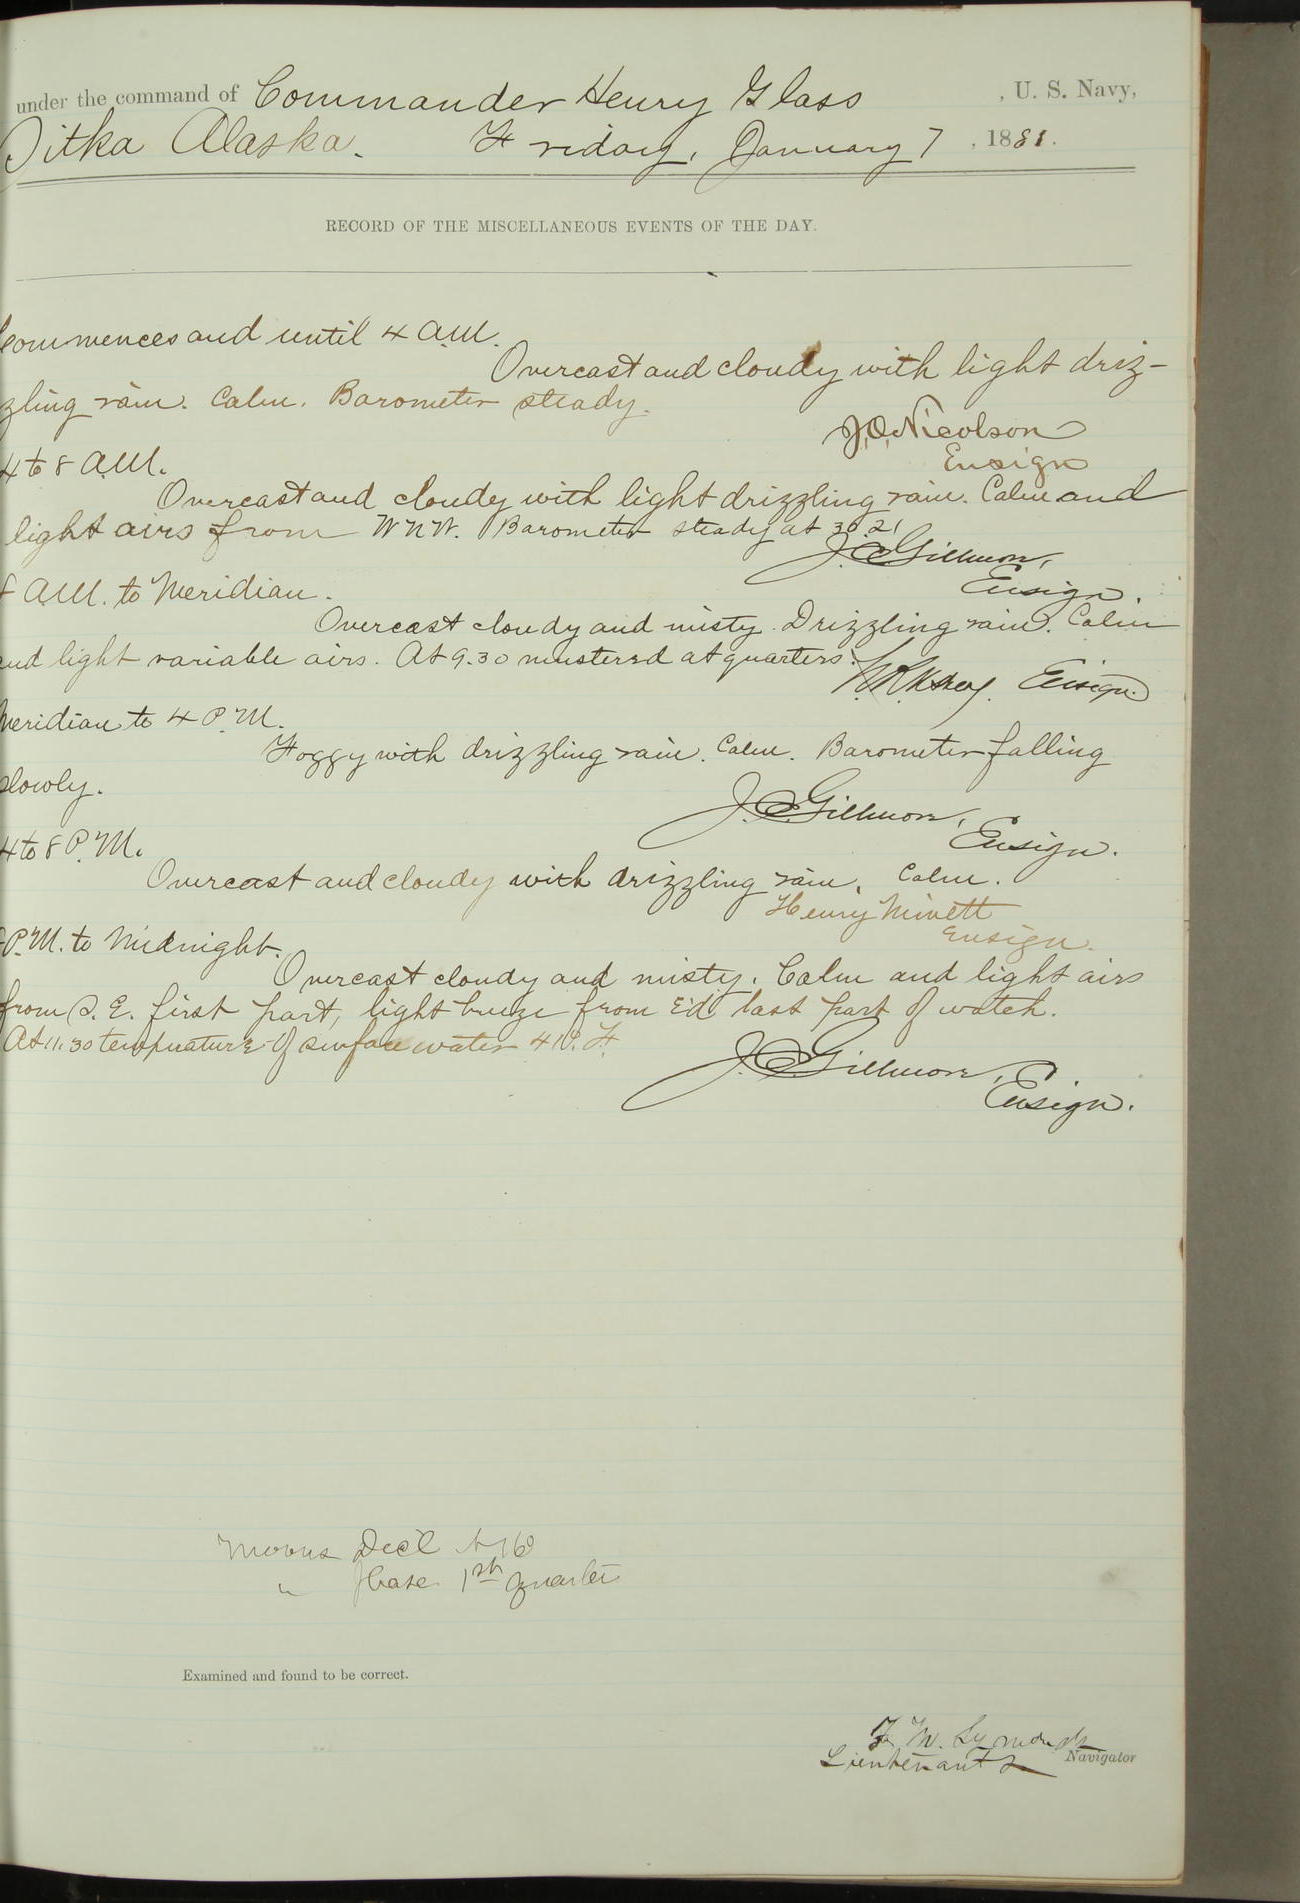 under the command of Commander Henry Glass , U. S. Navy,
Sitka Alaska. Friday, January 7 , 1881.
RECORD OF THE MISCELLANEOUS EVENTS OF THE DAY.
Commences and until 4 A.M.
Overcast and cloudy with light driz-
zling rain. Calm. Barometer steady.
J.O. Nicolson
Ensign
4 to 8 A.M.
Overcast and cloudy with light drizzling rain. Calm and
light airs from W N W. Barometer steady at 30.21
J.C. Gillmore,
Ensign.
8 A.M. to Meridian.
Overcast cloudy and misty. Drizzling rain. Calm
and light variable airs. At 9.30 mustered at quarters.
Ensign.
Meridian to 4 P.M.
Foggy with drizzling rain. Calm. Barometer falling
slowly.
J.C. Gillmore,
Ensign.
4 to 8 P.M.
Overcast and cloudy with drizzling rain, Calm.
Henry Minett
Ensign.
8 P.M. to Midnight.
Overcast cloudy and misty. Calm and light airs
from S. E. first part, light breeze from E'd last part of watch.
At 11.30 temperature of surface water 41°. F.
J.C. Gillmore,
Ensign.
Moons Decl N 16°
" Phase 1st quarter
Examined and found to be correct.
F. M. Symonds
Lieutenant & Navigator